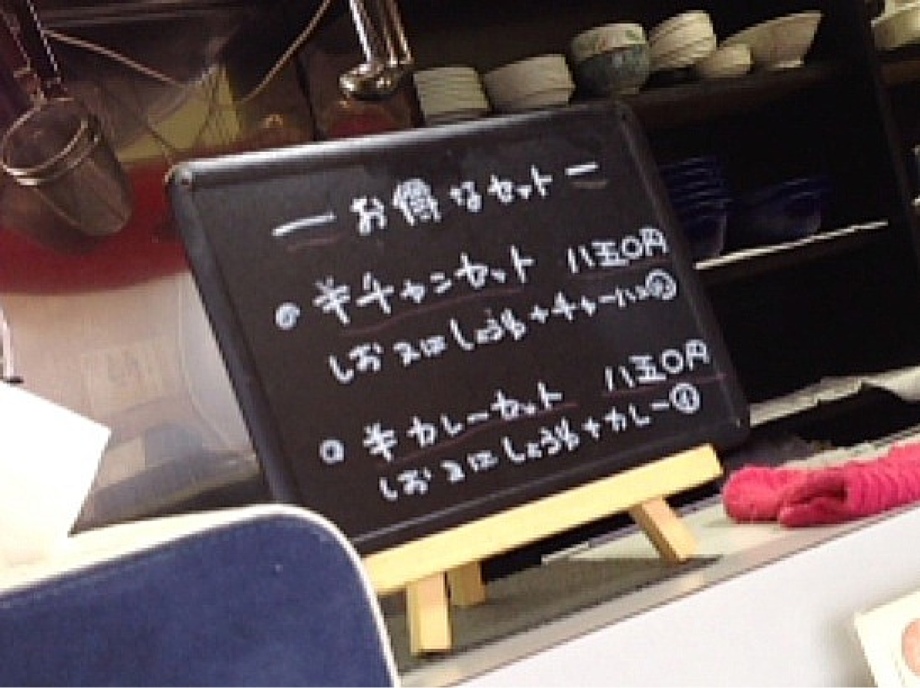 ー お得なセット ー
◎ 半チャンセット 八五〇円
しお又はしょうゆ+チャーハン㊥
◎ 半カレーセット 八五〇円
しお又はしょうゆ+カレー㊥